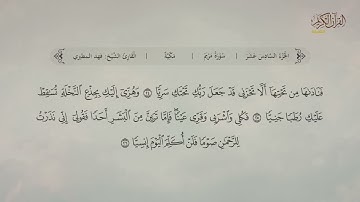 القرآن الكريم
الجزء السادس عشر | سورة مريم | مكية | القارئ الشيخ فهد المطيري
فَنَادَىٰهَا مِن تَحْتِهَآ أَلَّا تَحْزَنِى قَدْ جَعَلَ رَبُّكِ تَحْتَكِ سَرِيًّا ۝٢٤ وَهُزِّىٓ إِلَيْكِ بِجِذْعِ ٱلنَّخْلَةِ تُسَٰقِطْ
عَلَيْكِ رُطَبًا جَنِيًّا ۝٢٥ فَكُلِى وَٱشْرَبِى وَقَرِّى عَيْنًا فَإِمَّا تَرَيِنَّ مِنَ ٱلْبَشَرِ أَحَدًا فَقُولِىٓ إِنِّى نَذَرْتُ
لِلرَّحْمَٰنِ صَوْمًا فَلَنْ أُكَلِّمَ ٱلْيَوْمَ إِنسِيًّا ۝٢٦